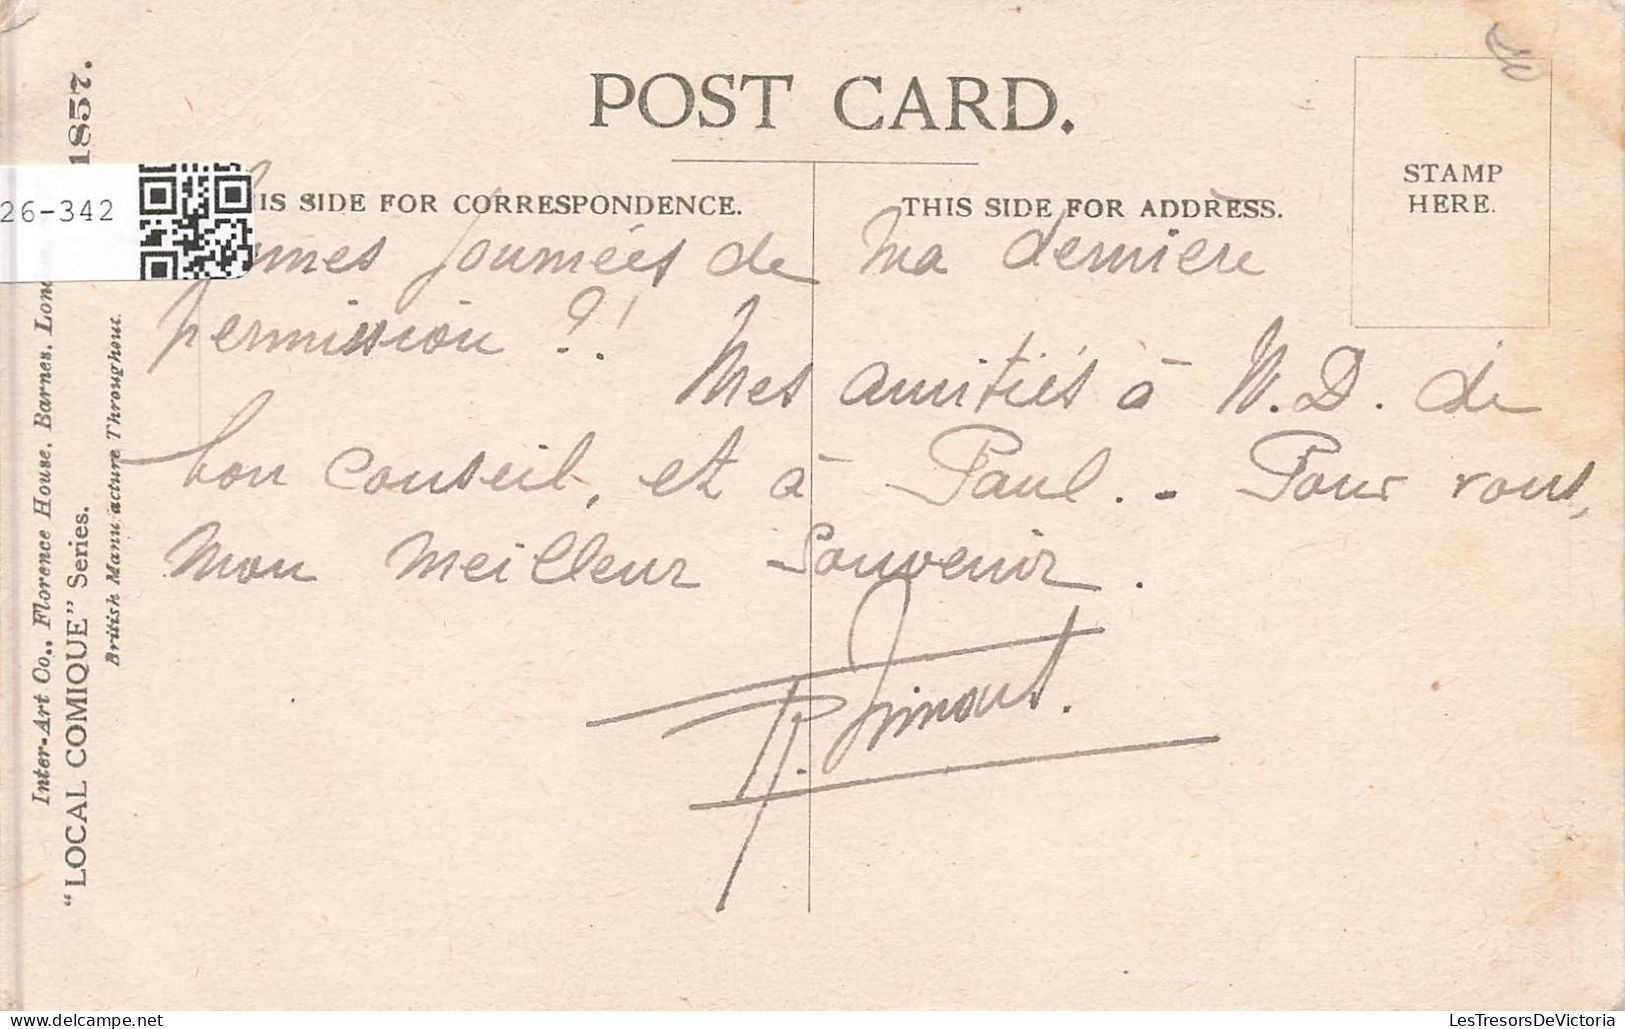 POST CARD.
IS SIDE FOR CORRESPONDENCE.
THIS SIDE FOR ADDRESS.
STAMP
HERE.
journées de ma dernière
permission ?!
Mes amitiés à N. D. de
bon conseil, et à Paul. - Pour vous,
mon meilleur souvenir.
26-342
Inter-Art Co., Florence House, Barnes, Lon
"LOCAL COMIQUE" Series. 1857.
British Manu acture Throughout
LesTresorsDeVictoria